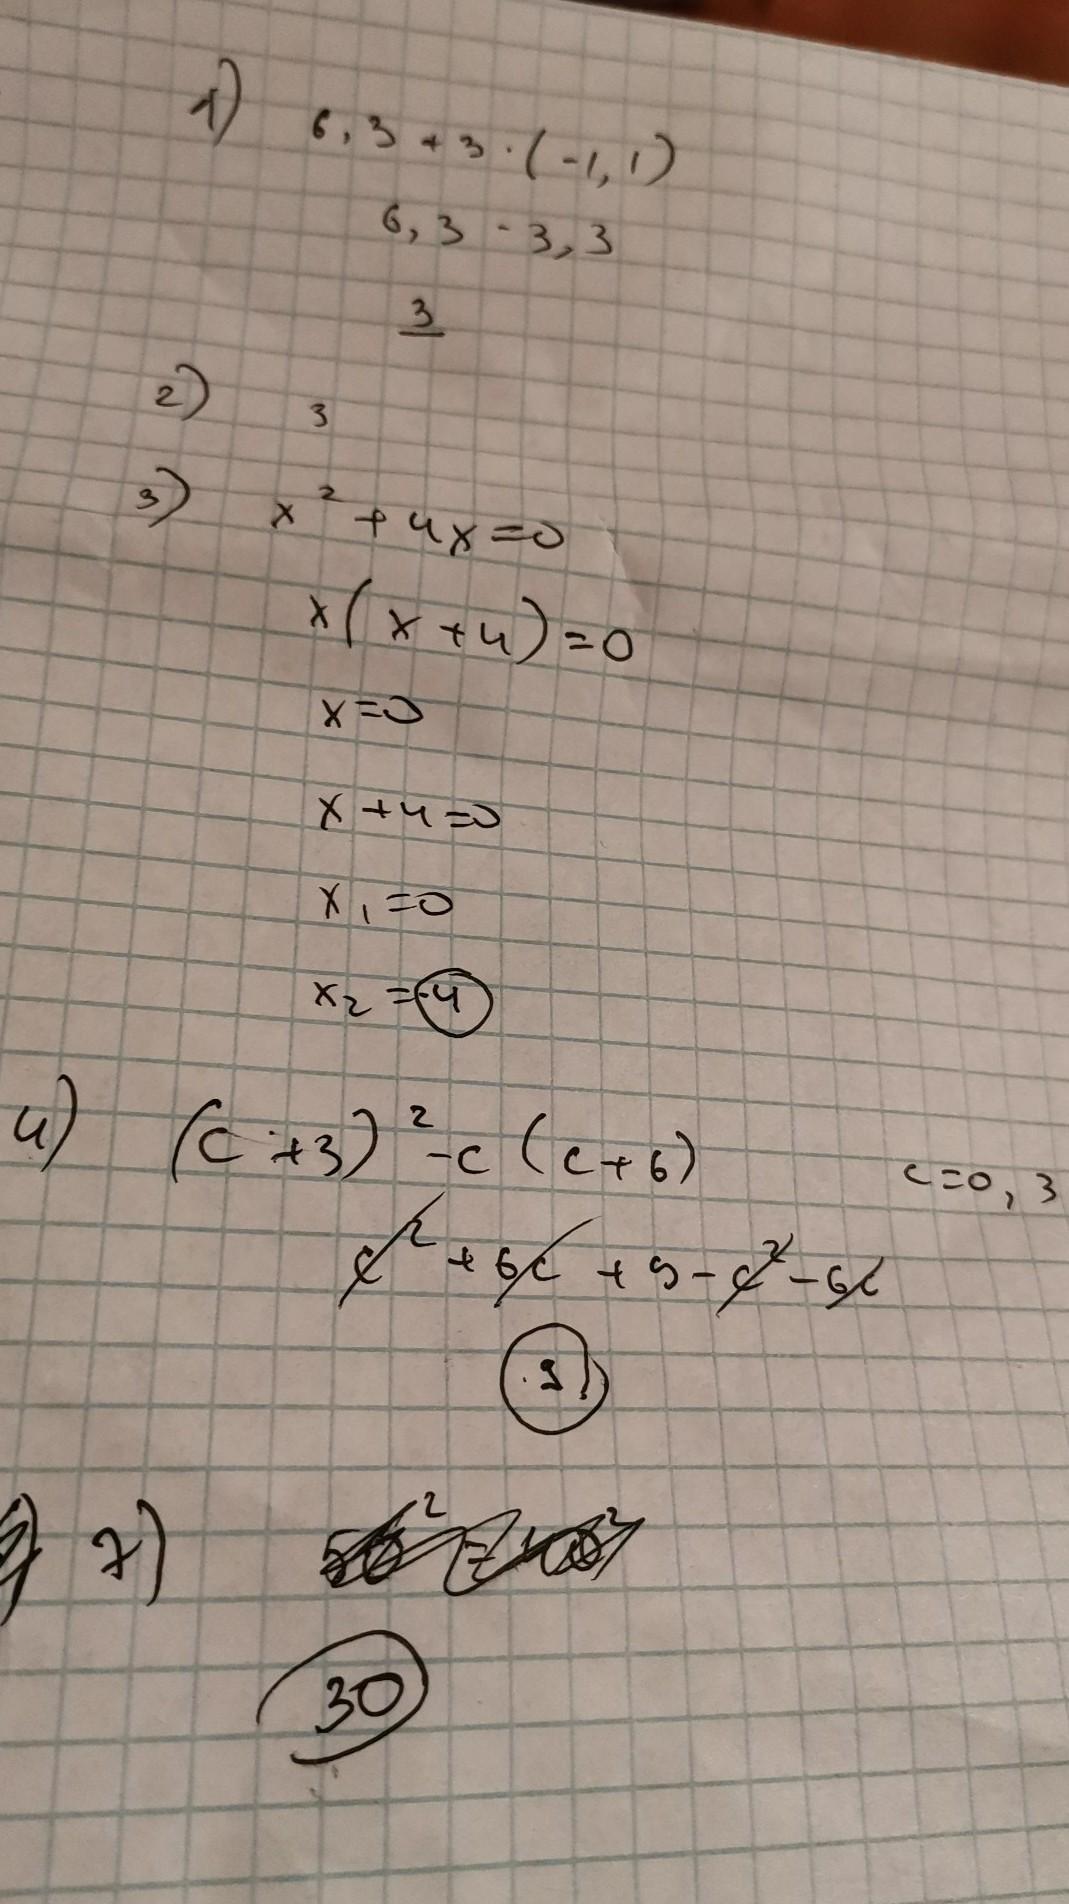 1) 6,3 + 3 · (-1,1)
6,3 - 3,3
3
2) 3
3) x² + 4x = 0
x(x + 4) = 0
x = 0
x + 4 = 0
x₁ = 0
x₂ = -4
4) (c + 3)² - c (c + 6) c = 0,3
c² + 6c + 9 - c² - 6c
9
7)
30